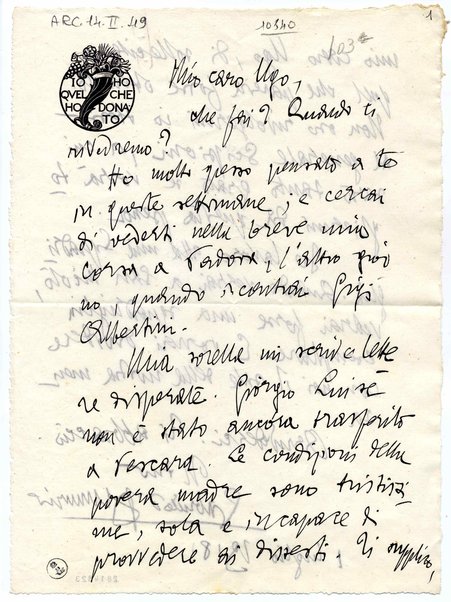 ARC. 14. II. 49
10340
1
IO HO
QVEL CHE
HO DONA
TO
Mio caro Ugo,
che fai? Quando ti
rivedremo?
Ho molto spesso pensato a te
in queste settimane; e cercai
di vederti nella breve mia
corsa a Padova, l'altro gior
no, quando incontrai Gigi
Albertini.
Mia sorella mi scrive lette
re disperate. Giorgio Luise
non è stato ancora trasferito
a Pescara. Le condizioni della
povera madre sono tristissi
me, sola e incapace di
provvedere ai dissesti. Ti supplico,